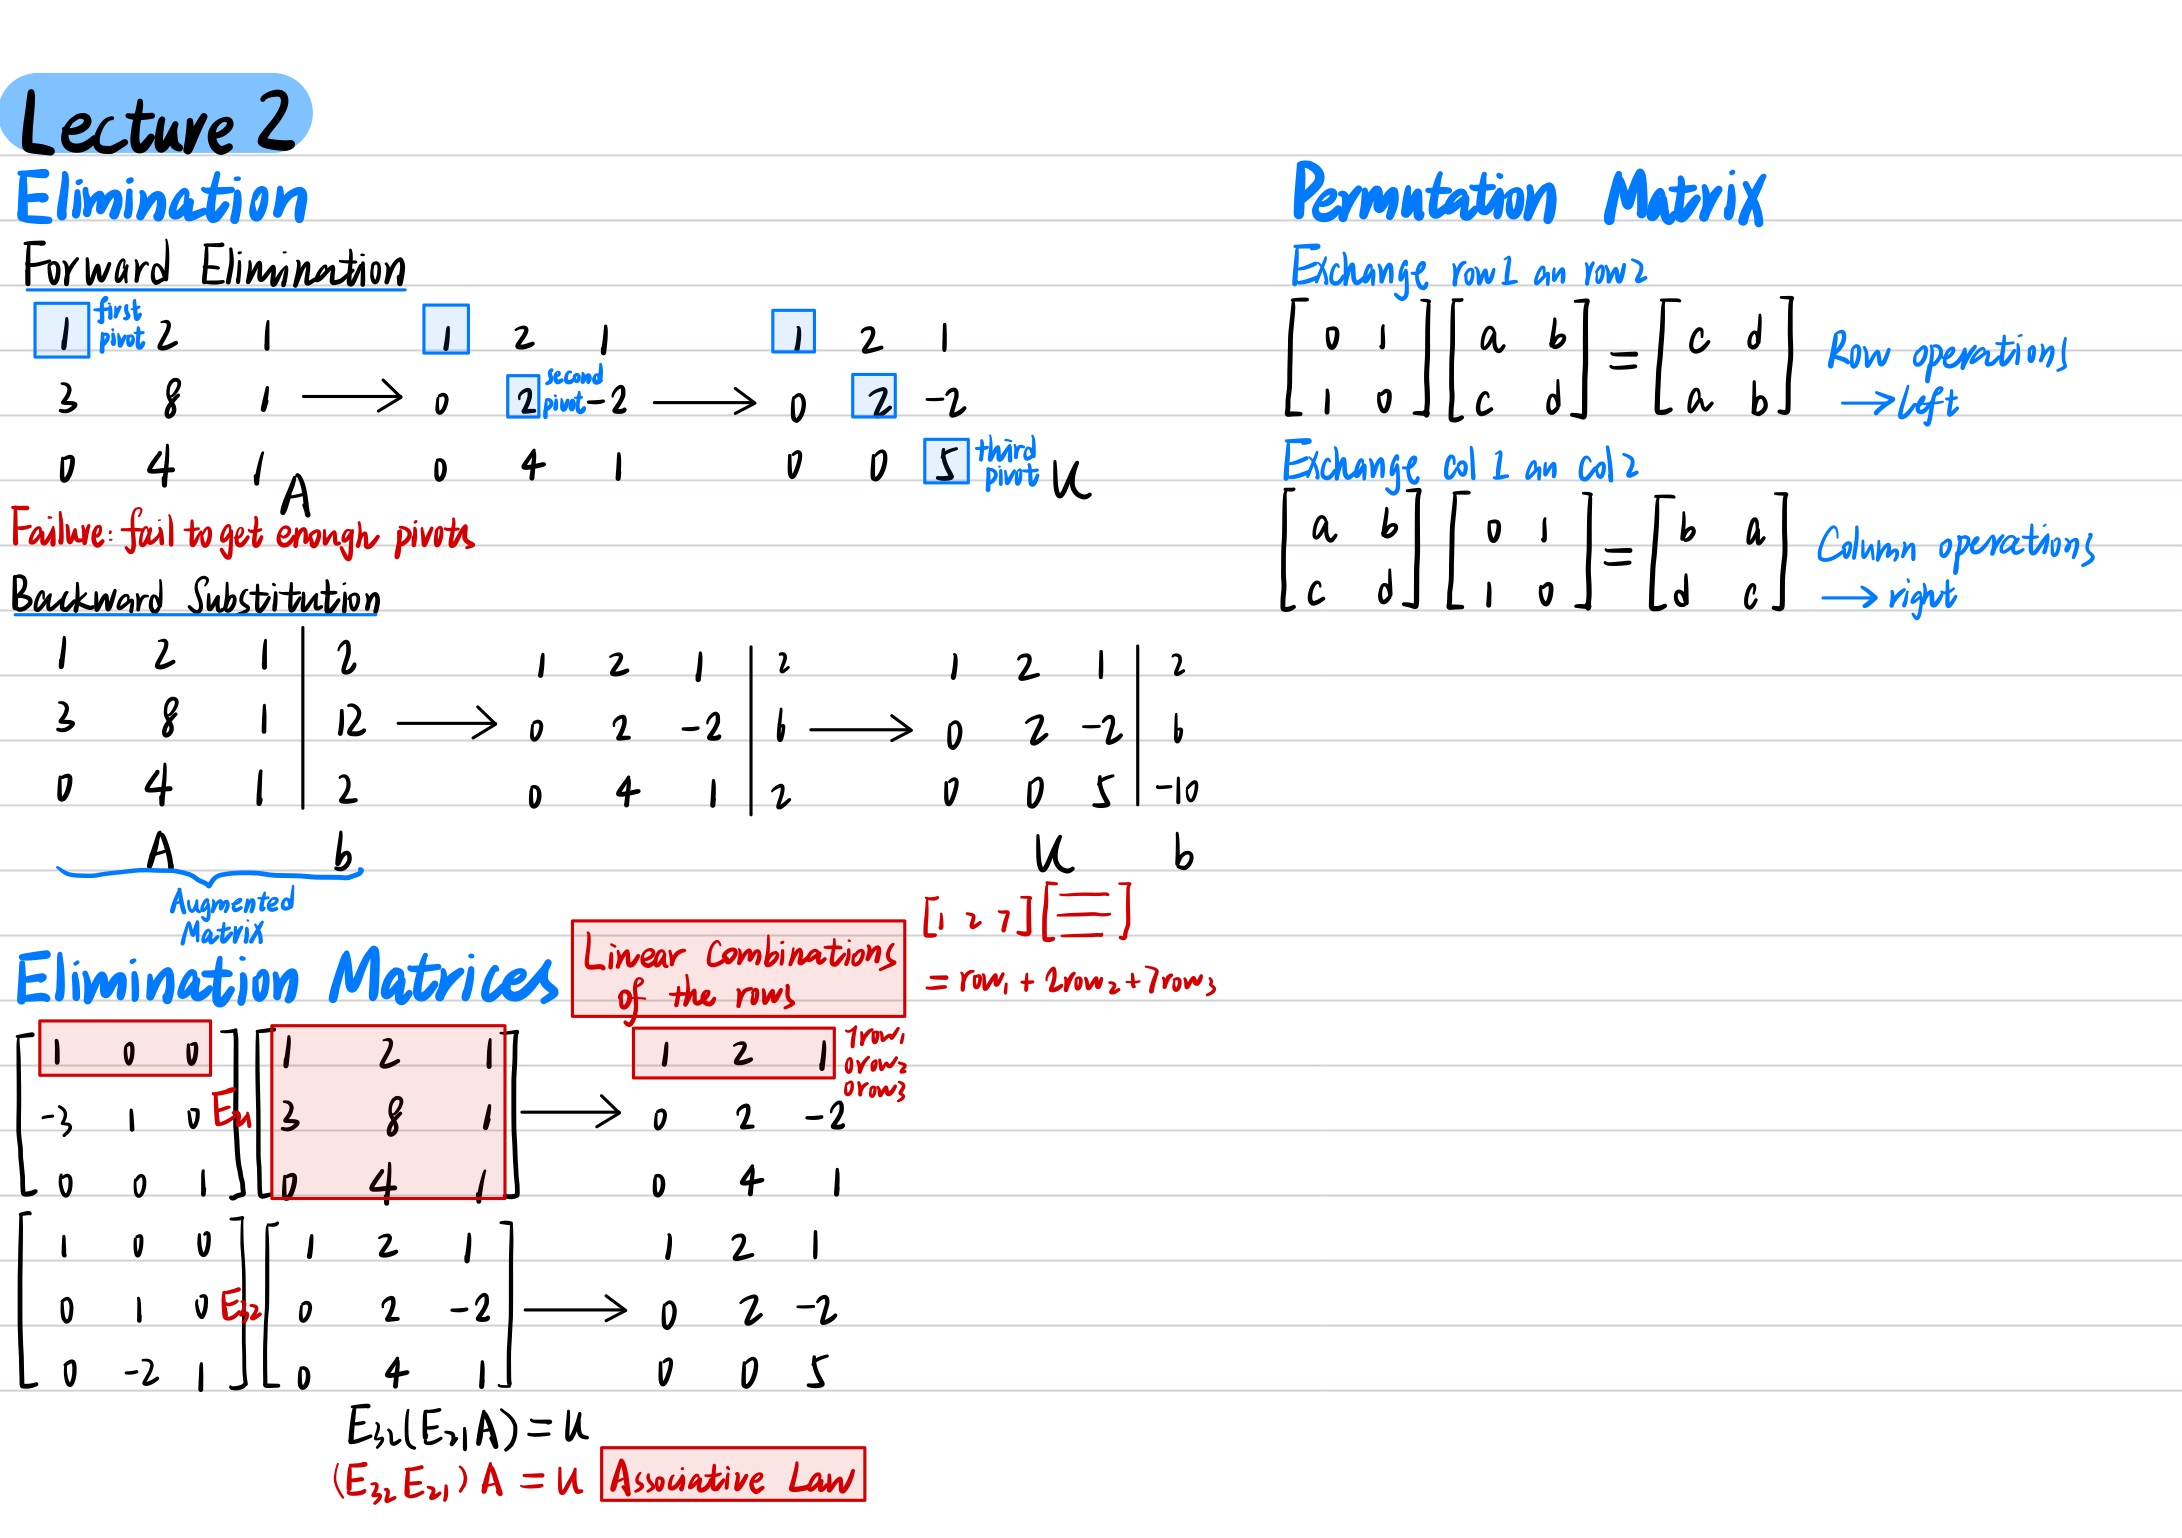 Lecture 2
Elimination
Forward Elimination
1 first pivot 2 1 1 2 1 1 2 1
3 8 1 → 0 2 second pivot -2 → 0 2 -2
0 4 1 0 4 1 0 0 5 third pivot
A U
Failure: fail to get enongh pivots
Backward Substitution
1 2 1 | 2 1 2 1 | 2 1 2 1 | 2
3 8 1 | 12 → 0 2 -2 | 6 → 0 2 -2 | 6
0 4 1 | 2 0 4 1 | 2 0 0 5 | -10
A b U b
Augmented
Matrix
Elimination Matrices
Linear Combinations
of the rows
[1 2 7] [ ]
= row₁ + 2row₂ + 7row₃
1 0 0 1 2 1 1 2 1
-3 1 0 E₂₁ 3 8 1 → 0 2 -2
0 0 1 0 4 1 0 4 1
1row₁
0row₂
0row3
1 0 0 1 2 1 1 2 1
0 1 0 E₃₂ 0 2 -2 → 0 2 -2
0 -2 1 0 4 1 0 0 5
E₃₂(E₂₁A) = U
(E₃₂E₂₁)A = U Associative Law
Permutation Matrix
Exchange row1 an row2
0 1 a b = c d Row operations
1 0 c d a b → left
Exchange col 1 an col 2
a b 0 1 = b a Column operations
c d 1 0 d c → right